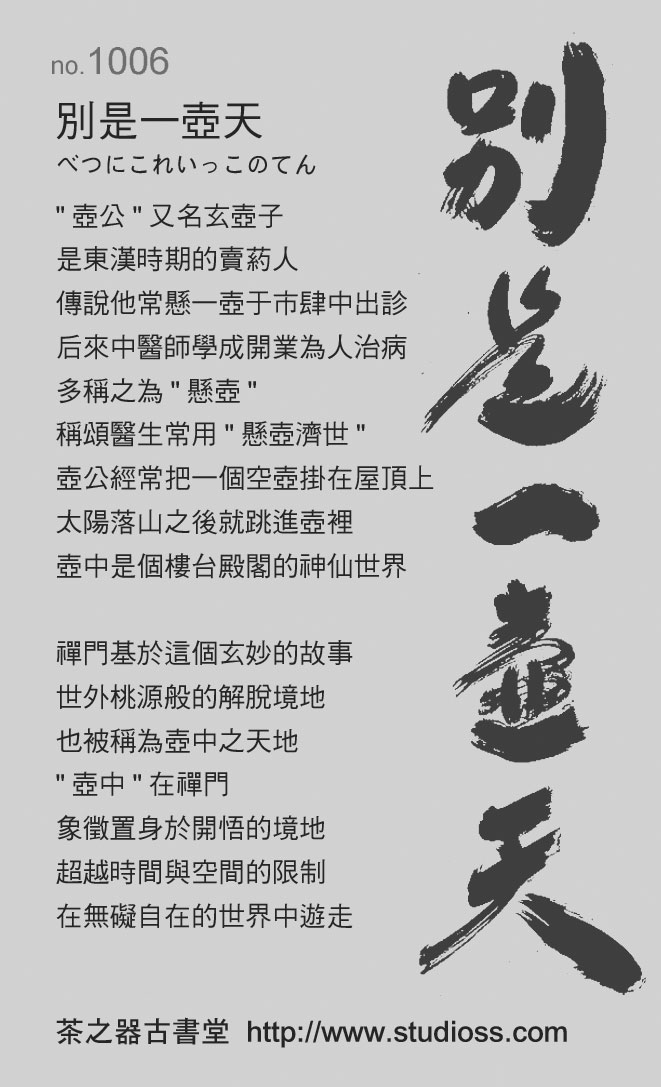 no.1006
別是一壺天
べつにこれいっこのてん
"壺公"又名玄壺子
是東漢時期的賣葯人
傳說他常懸一壺于市肆中出診
后來中醫師學成開業為人治病
多稱之為"懸壺"
稱頌醫生常用"懸壺濟世"
壺公經常把一個空壺掛在屋頂上
太陽落山之後就跳進壺裡
壺中是個樓台殿閣的神仙世界
禪門基於這個玄妙的故事
世外桃源般的解脫境地
也被稱為壺中之天地
"壺中"在禪門
象徵置身於開悟的境地
超越時間與空間的限制
在無礙自在的世界中遊走
茶之器古書堂 http://www.studioss.com
別是一壺天